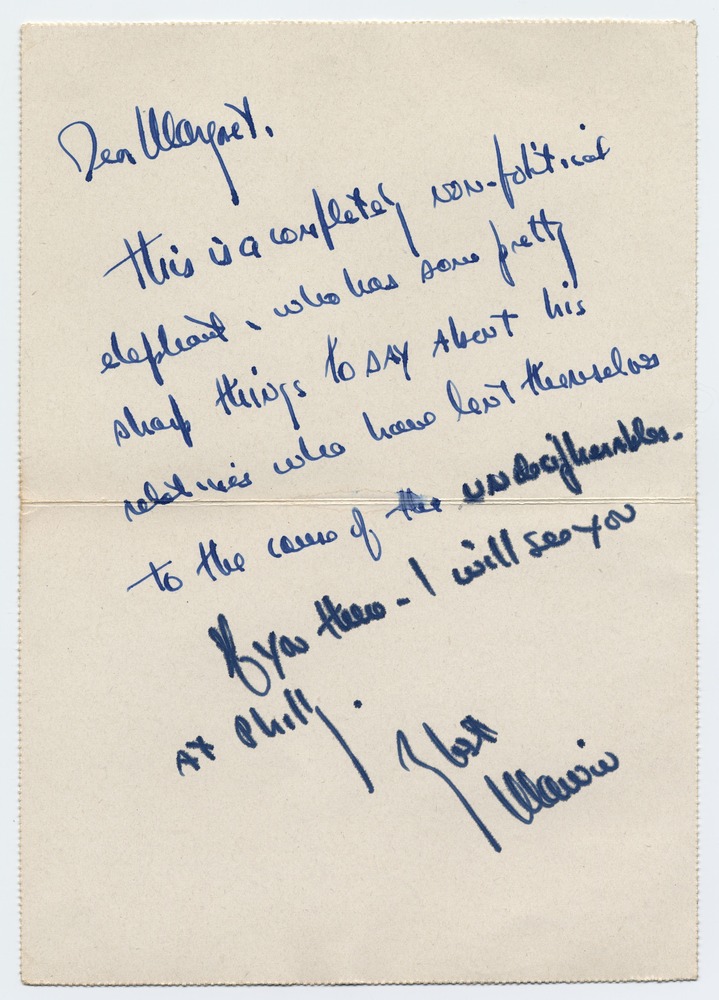 Dear Margret.
This is a completely non-political
elephant, who has some pretty
sharp things to SAY About his
relatives who have lent themselves
to the cause of the undecipherables.
If you there - I will see you
At Philly.
best
Marvin